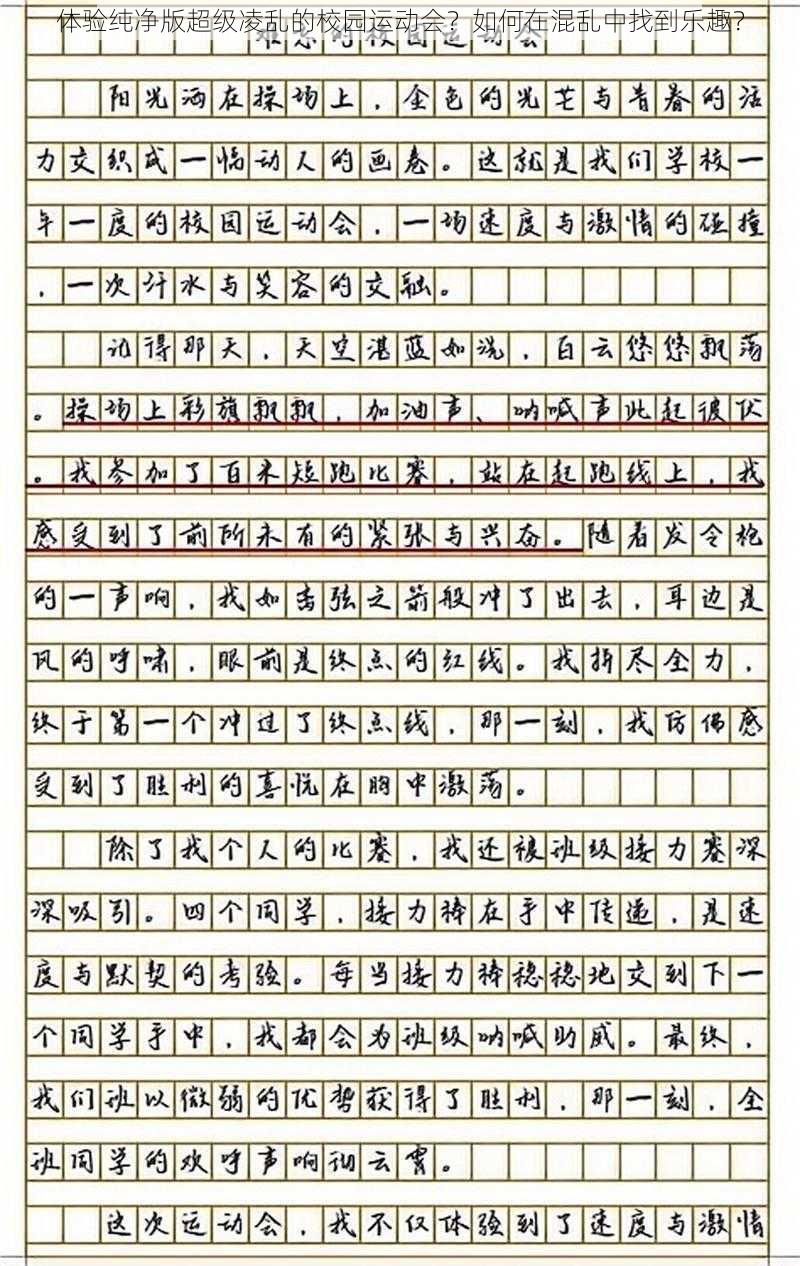 体验纯净版超级凌乱的校园运动会？如何在混乱中找到乐趣？
难忘的校园运动会
阳光洒在操场上，金色的光芒与青春的活
力交织成一幅动人的画卷。这就是我们学校一
年一度的校园运动会，一场速度与激情的碰撞
，一次汗水与笑容的交融。
记得那天，天空湛蓝如洗，白云悠悠飘荡
。操场上彩旗飘飘，加油声、呐喊声此起彼伏
。我参加了百米短跑比赛，站在起跑线上，我
感受到了前所未有的紧张与兴奋。随着发令枪
的一声响，我如离弦之箭般冲了出去，耳边是
风的呼啸，眼前是终点的红线。我拼尽全力，
终于第一个冲过了终点线，那一刻，我仿佛感
受到了胜利的喜悦在胸中激荡。
除了我个人的比赛，我还被班级接力赛深
深吸引。四个同学，接力棒在手中传递，是速
度与默契的考验。每当接力棒稳稳地交到下一
个同学手中，我都会为班级呐喊助威。最终，
我们班以微弱的优势获得了胜利，那一刻，全
班同学的欢呼声响彻云霄。
这次运动会，我不仅体验到了速度与激情